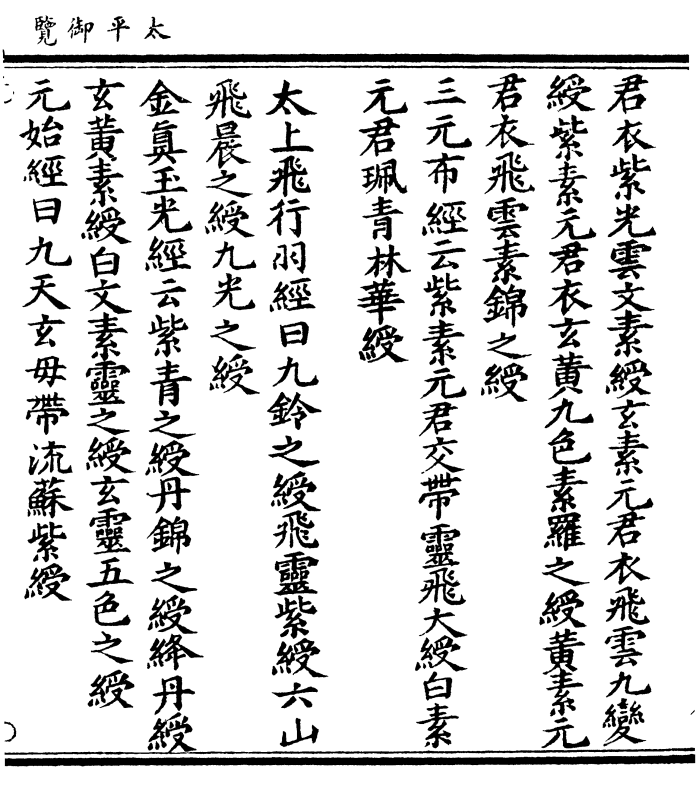 太平御覽
君衣紫光雲文素綬玄素元君衣飛雲九變
綬紫素元君衣玄黄九色素羅之綬黄素元
君衣飛雲素錦之綬
三元布經云紫素元君交帶靈飛大綬白素
元君珮青林華綬
太上飛行羽經曰九鈴之綬飛靈紫綬六山
飛晨之綬九光之綬
金真玉光經云紫青之綬丹錦之綬絳丹綬
玄黄素綬白文素靈之綬玄靈五色之綬
元始經曰九天玄毋帶流蘇紫綬